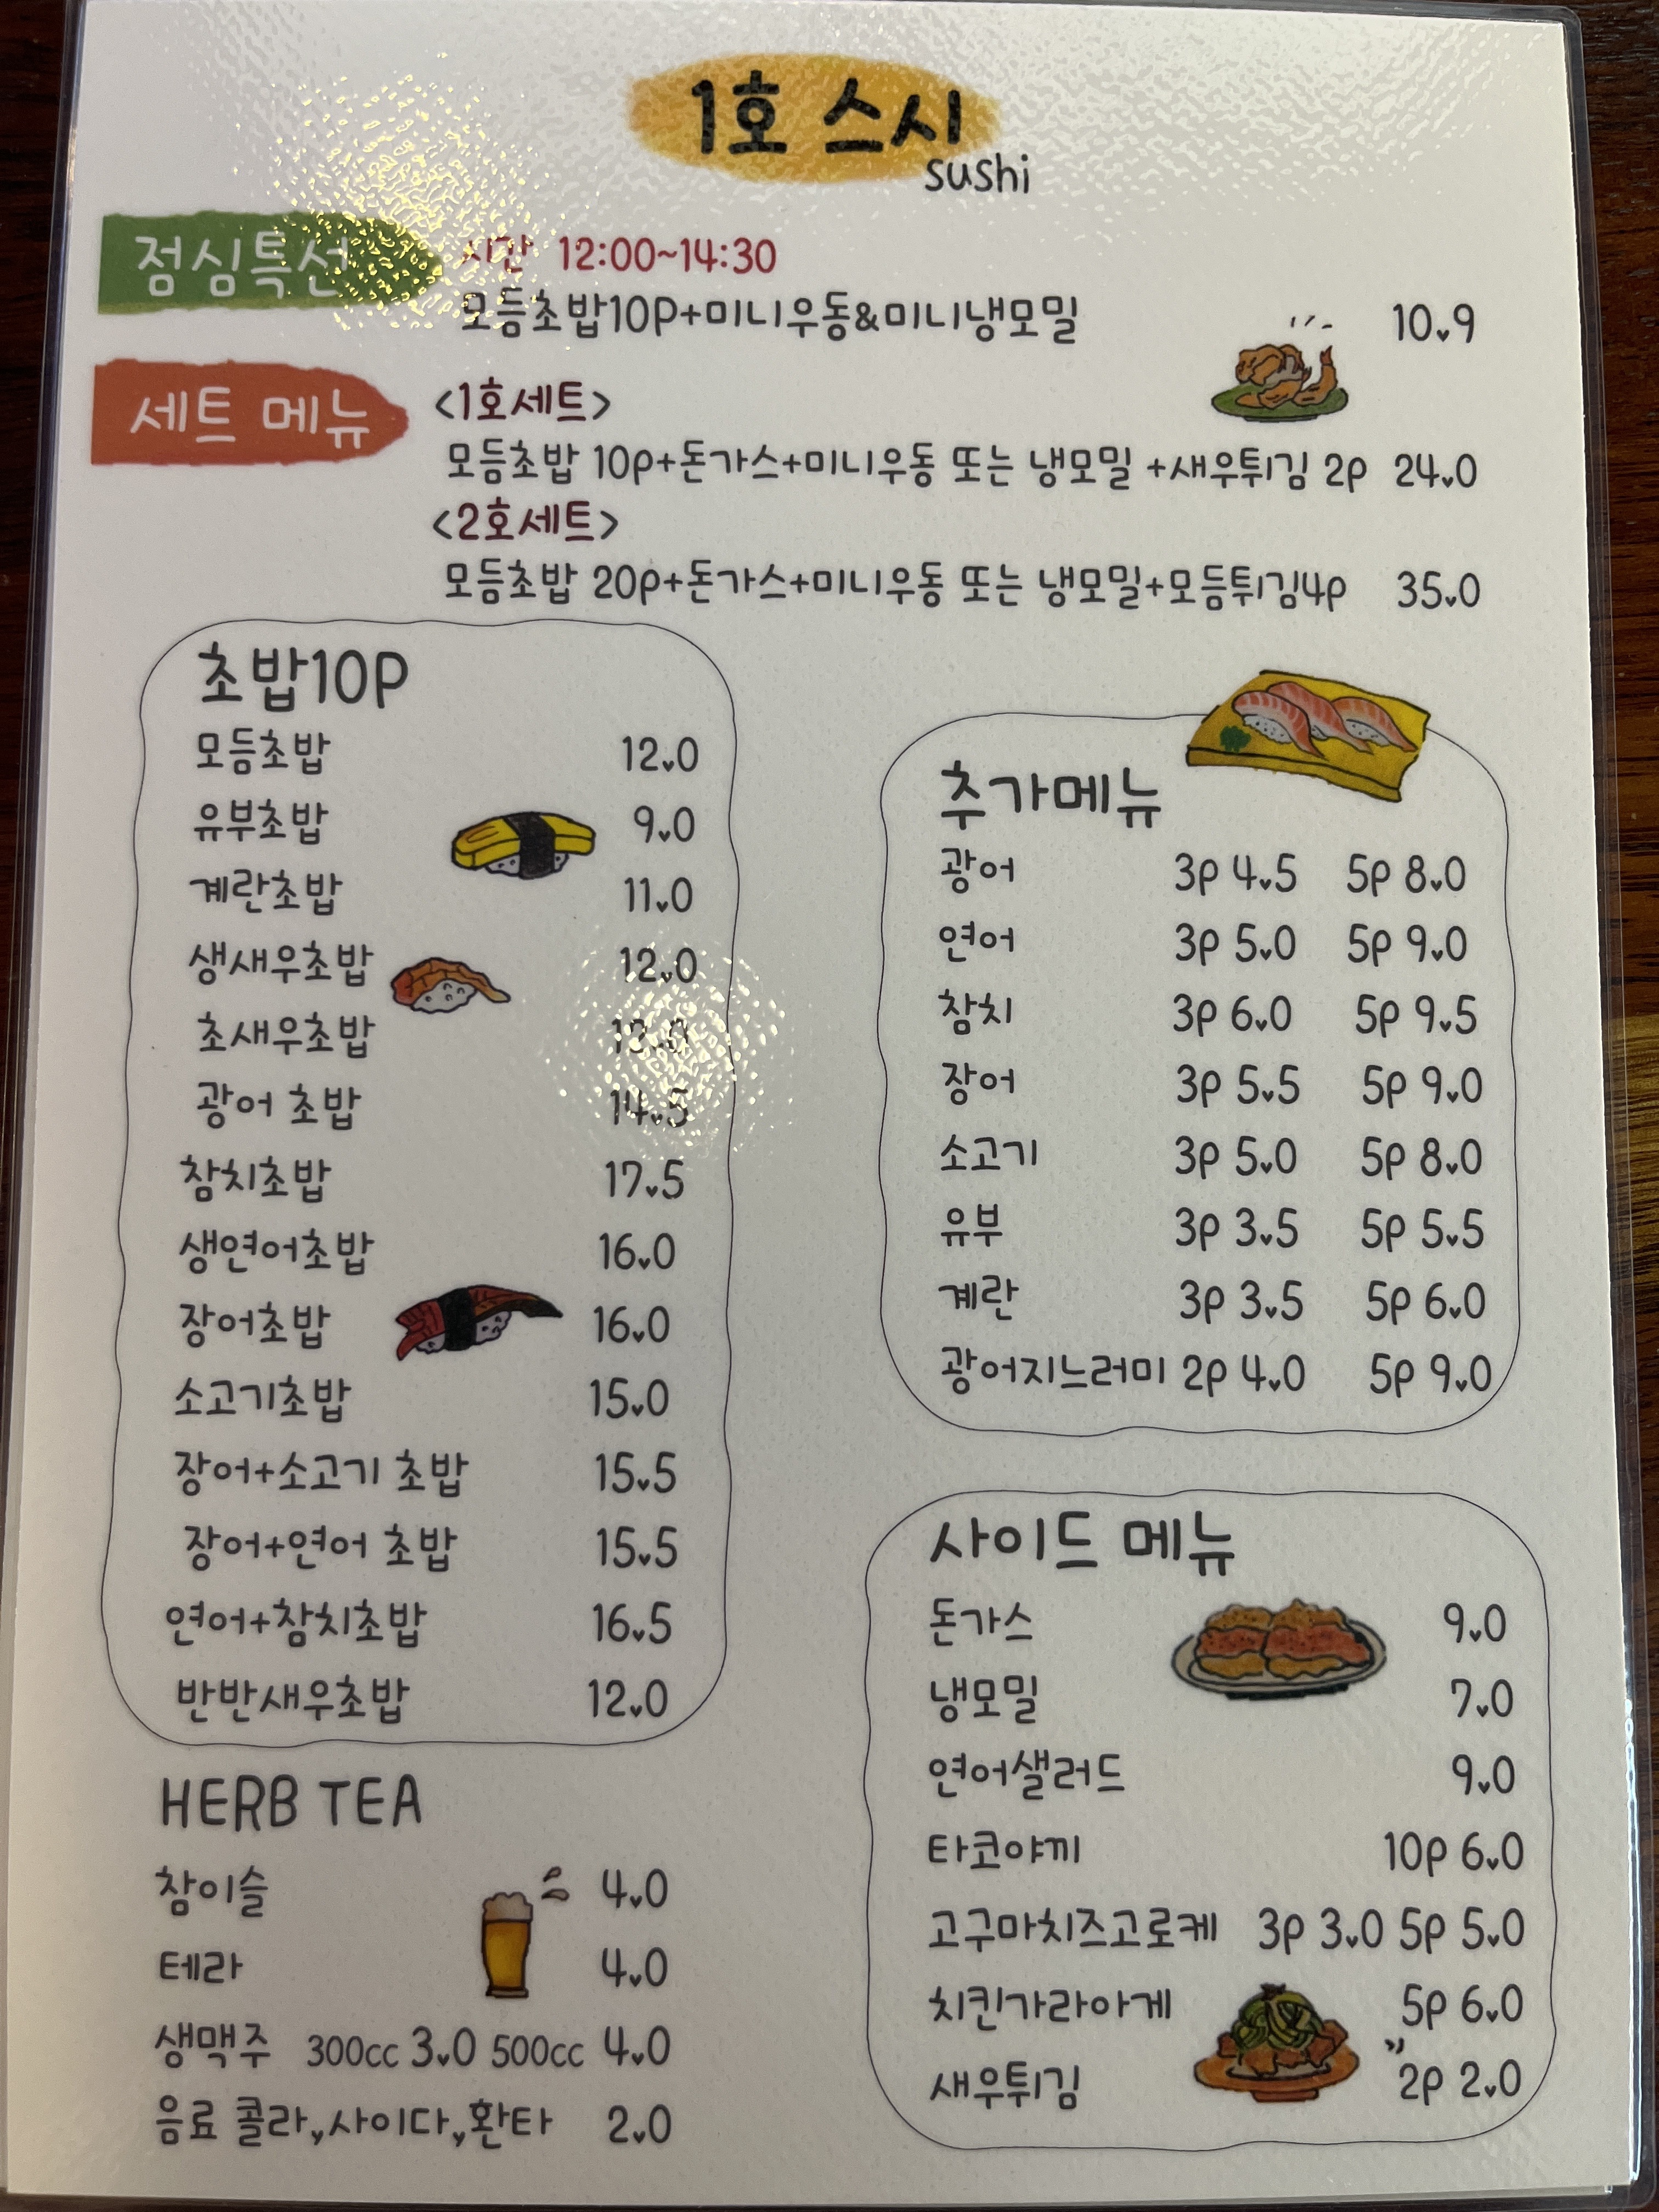 1호 스시
sushi
점심특선
시간 12:00~14:30
모듬초밥10P+미니우동&미니냉모밀 10.9
세트 메뉴
<1호세트>
모듬초밥 10p+돈가스+미니우동 또는 냉모밀 +새우튀김 2p 24.0
<2호세트>
모듬초밥 20p+돈가스+미니우동 또는 냉모밀+모듬튀김4p 35.0
초밥10P
모듬초밥 12.0
유부초밥 9.0
계란초밥 11.0
생새우초밥 12.0
초새우초밥
광어 초밥 14.5
참치초밥 17.5
생연어초밥 16.0
장어초밥 16.0
소고기초밥 15.0
장어+소고기 초밥 15.5
장어+연어 초밥 15.5
연어+참치초밥 16.5
반반새우초밥 12.0
HERB TEA
참이슬 4.0
테라 4.0
생맥주 300cc 3.0 500cc 4.0
음료 콜라,사이다,환타 2.0
추가메뉴
광어 3p 4.5 5p 8.0
연어 3p 5.0 5p 9.0
참치 3p 6.0 5p 9.5
장어 3p 5.5 5p 9.0
소고기 3p 5.0 5p 8.0
유부 3p 3.5 5p 5.5
계란 3p 3.5 5p 6.0
광어지느러미 2p 4.0 5p 9.0
사이드 메뉴
돈가스 9.0
냉모밀 7.0
연어샐러드 9.0
타코야끼 10p 6.0
고구마치즈고로케 3p 3.0 5p 5.0
치킨가라아게 5p 6.0
새우튀김 2p 2.0